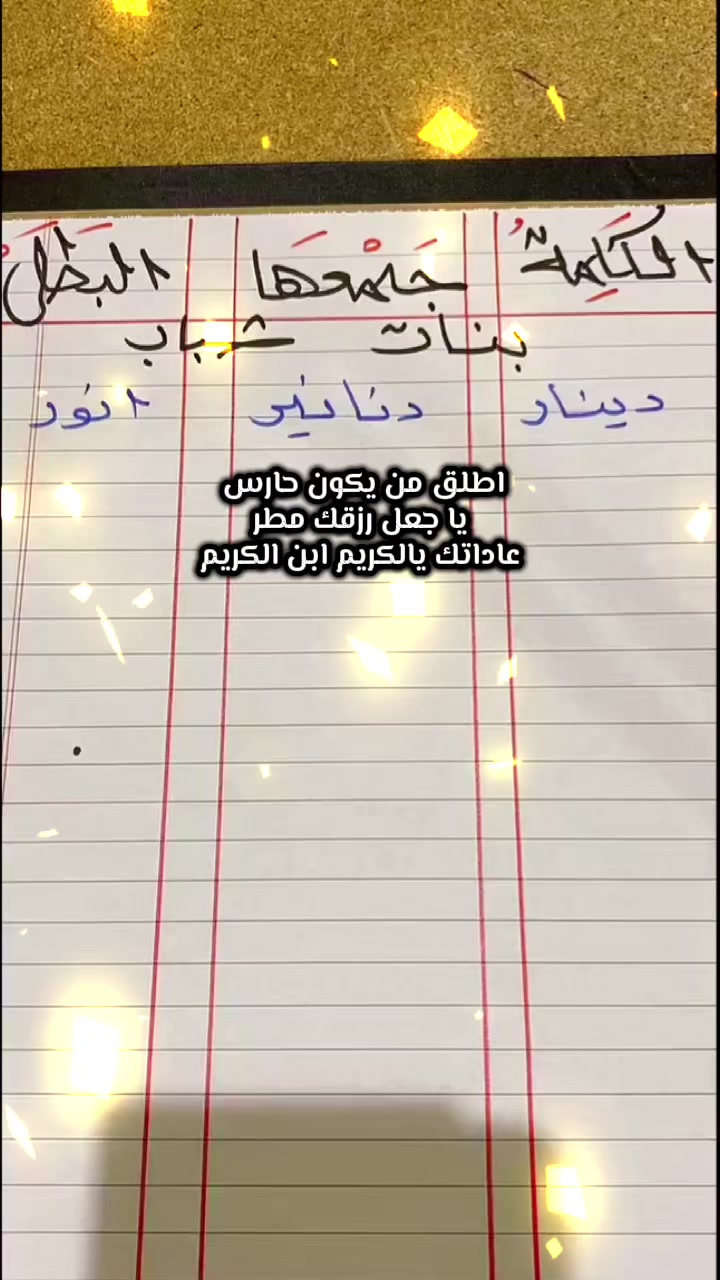 الكَلِمةُ جَمْعُهَا البَطَل
بنات شباب
دينار دنانير انور
اطلق من يكون حارس
يا جعل رزقك مطر
عاداتك يالكريم ابن الكريم